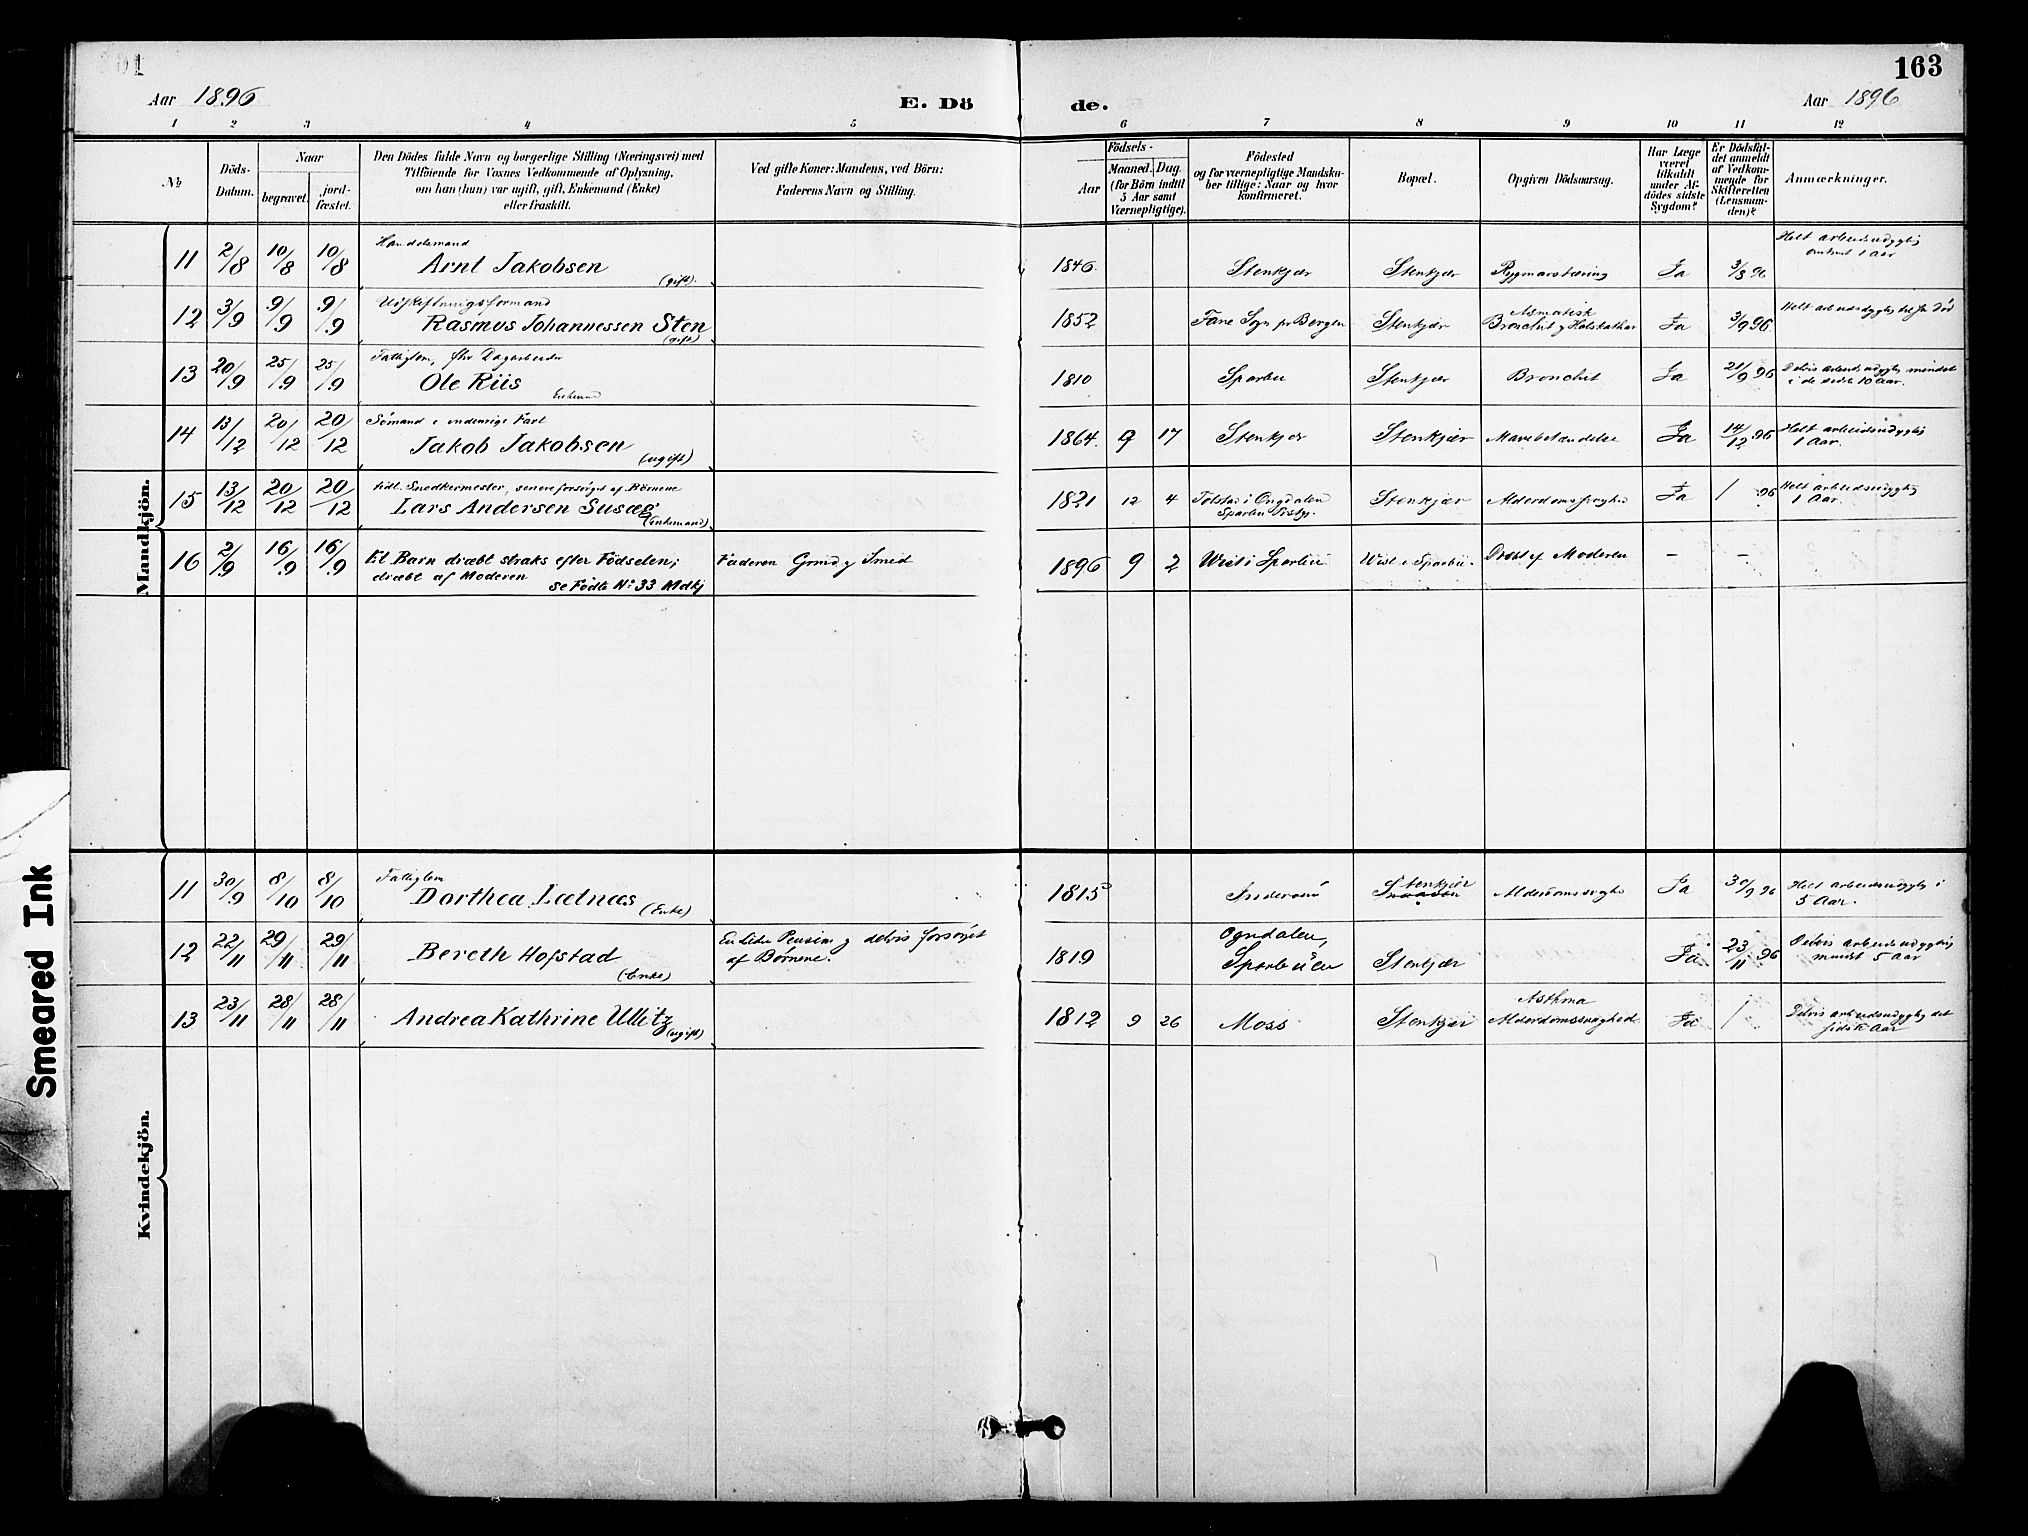 163
Aar 1896 E. Dö de. Aar 1896
1 2 3 4 5 6 7 8 9 10 11 12
No
Döds-Datum.
Naar
begravet.
jord-fæstet.
Den Dödes fulde Navn og borgerlige Stilling (Næringsvei) med
Tilföiende för Voxnes Vedkommende af Oplysning,
om han (hun) var ugift, gift, Enkemand (Enke)
eller fraskilt.
Ved gifte Koner: Mandens, ved Börn:
Faderens Navn og Stilling.
Födsels-
Aar
Maaned. Dag.
(for Börn indtil
5 Aar samt
Værnepligtige).
Födested
og for værnepligtige Mandska-
ber tillige: Naar og hvor
konfirmeret.
Bopæl.
Opgiven Dödsaarsag.
Har Læge
været
tilkaldt
under Af-
dödes sidste
Sygdom?
Er Dödsfal-
det anmeldt
af Vedkom-
mende for
Skifteretten
(Lensman-
den)?
Anmærkninger.
Mandkjön.
11 2/8 10/8 10/8 Handelsmand
Arnt Jakobsen (gift). 1846. Stenkjær Stenkjær Rygmarvstæring Ja 3/8 96 Helt arbeidsudygtig
omtrent 1 Aar
12 3/9 9/9 9/9 Udskiftningsformand
Rasmus Johannessen Sten (gift) 1852 Fane Sogn pr Bergen Stenkjær Asmatisk
Bronchit Ja 3/9 96.
13 20/9 25/9 25/9 Fattiglem, fhv Dagarbeider
Ole Riis Enkemd 1810 Sparbu Stenkjær Bronchit Ja 21/9 96 Delvis arbeidsudygtig mindst
i de sidste 10 Aar.
14 13/12 20/12 20/12 Sömand i indenrigs Fart
Jakob Jakobsen (ugift) 1864. 9 17 Stenkjær Stenkjær Mavebetændelse Ja 14/12 96 Helt arbeidsudygtig
1 Aar.
15 13/12 20/12 20/12 tidl. Snedkermester, senere forsörget af Börnene
Lars Andersen Susæg (Enkemand) 1821 12 4 Tolstad i Ongdalen
Sparbu Prstgj. Stenkjær Alderdomssvaghed Ja / 96 Helt arbeidsudygtig
1 Aar.
16 2/9 16/9 16/9 Et Barn dræbt straks efter Födselen;
dræbt af Moderen se Födte No 33 Mdkj Faderen Grmd og Smed 1896 9 2 Wist i Sparbu Wist i Sparbu. Dræbt af Moderen - -
Kvindekjön.
11 30/9 8/10 8/10 Fattiglem
Dorthea Lætnæs (Enke) 1815 Inderøen Stenkjær
Snaasen Alderdomssvaghd Ja 30/9 96 Helt arbeidsudygtig i
5 Aar.
12 22/11 29/11 29/11 Bereth Hofstad (Enke) En liden Pension og delvis forsörget
af Börnene. 1819 Ogndalen,
Sparbuen Stenkjær Ja 23/11 96 Delvis arbeidsudygtig
mindst 5 Aar
13 23/11 28/11 28/11 Andrea Kathrine Ullitz (ugift) 1812 9 26 Moss Stenkjær Asthma
Alderdomssvaghed Ja / Delvis arbeidsudygtig det
sidste Aar
Smeared Ink